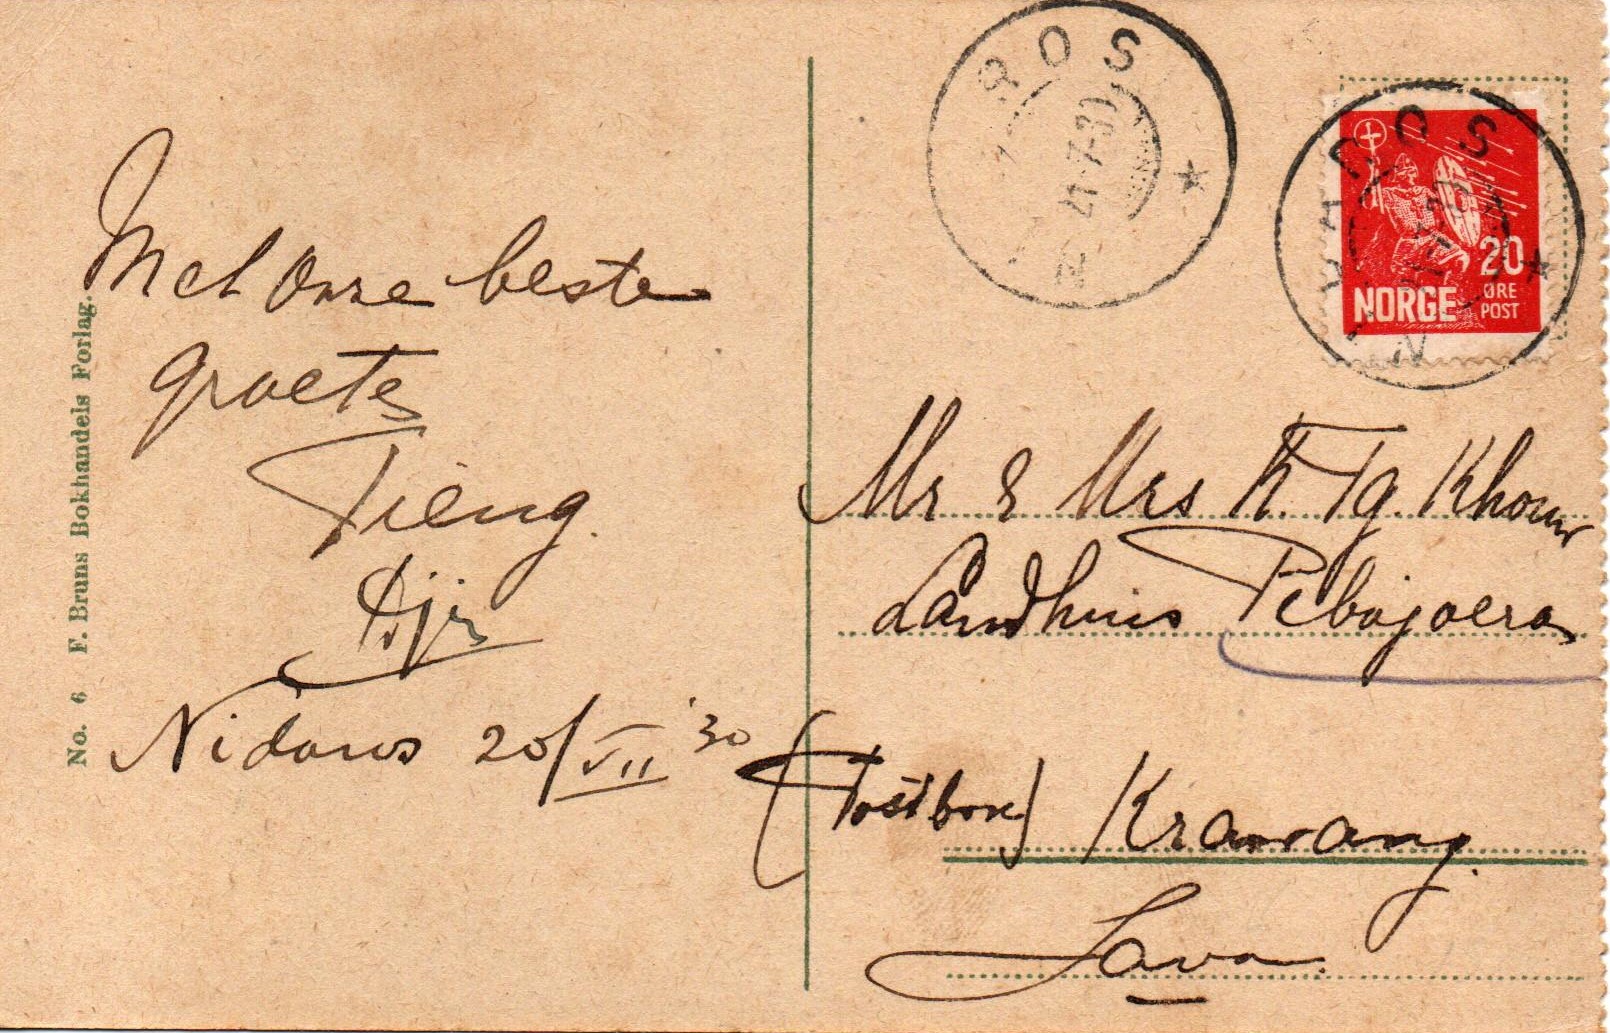 Met onze beste
groeten
Tieng
Nidaros 20/VII '30
No. 6 F. Bruns Bokhandels Forlag.
NIDAROS
21-7-30
NIDAROS
20
NORGE
ØRE
POST
Mr & Mrs K. Tg. Khouw
Landhuis Pebajoeran
(Postbox) Krawang.
Java.